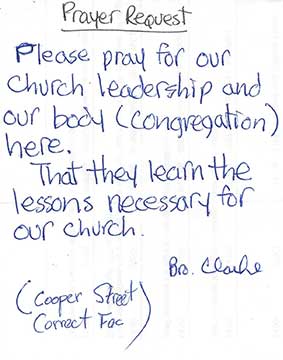 Prayer Request
Please pray for our
Church leadership and
our body (congregation)
here.
That they learn the
lessons necessary for
our church.
Bro. Clarke
(Cooper Street
Correct Fac)